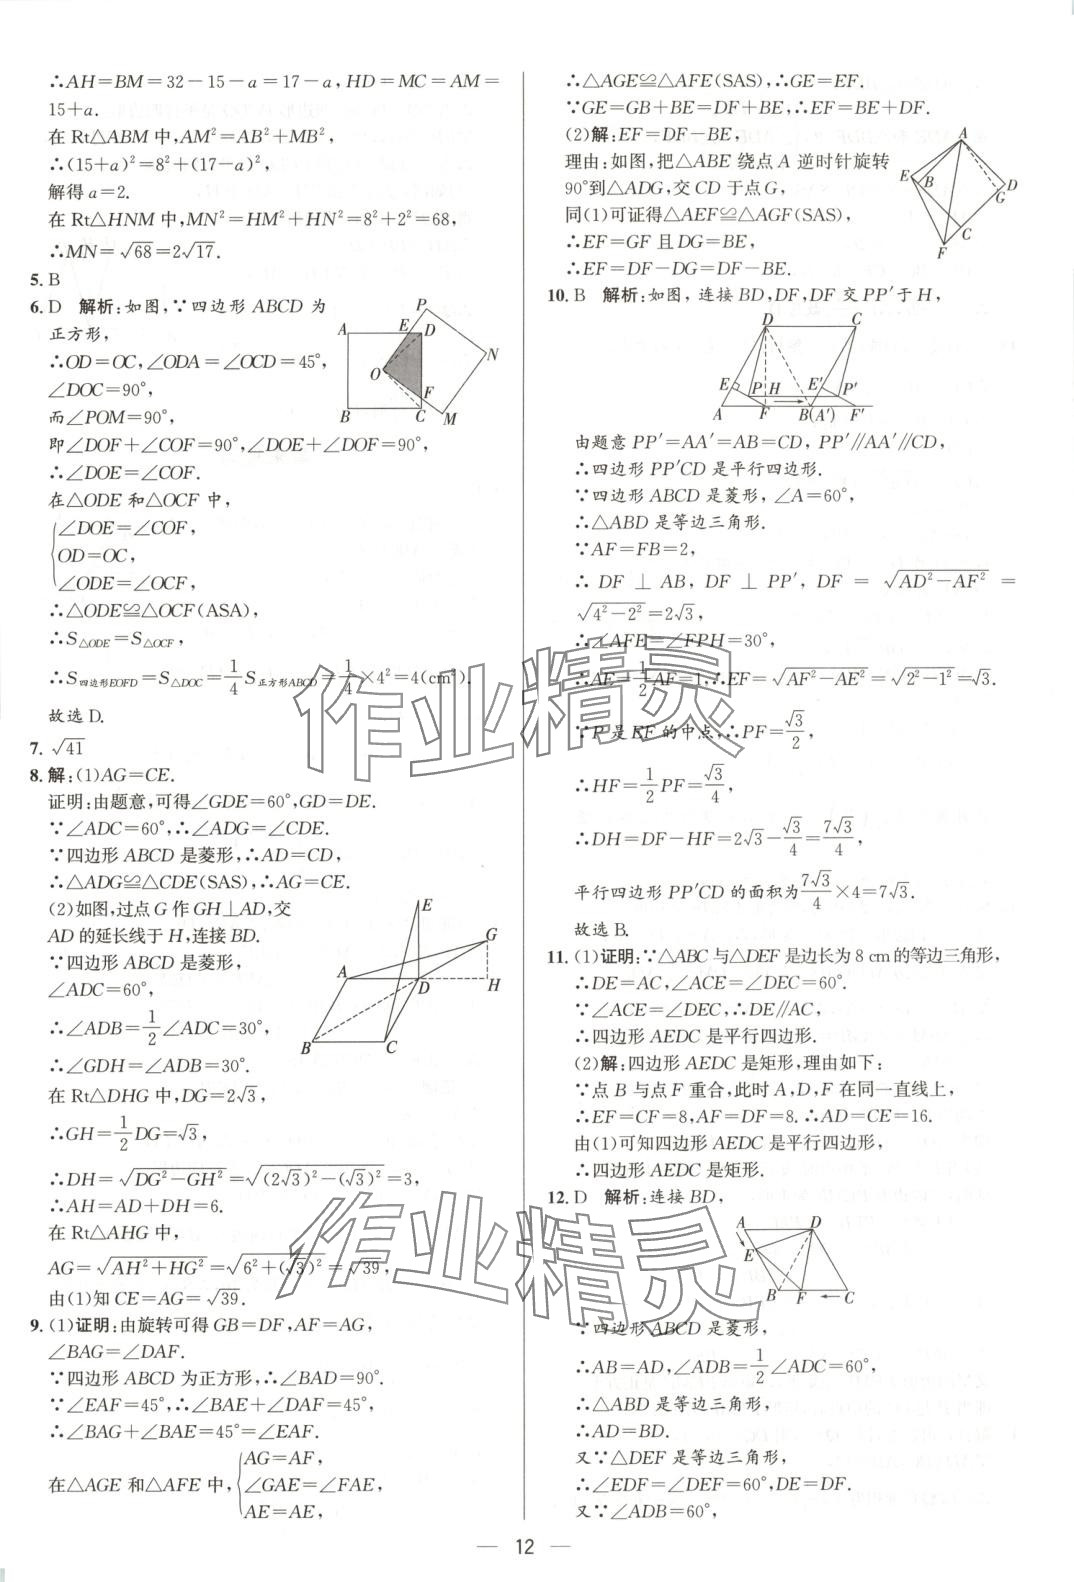 ∴AH=BM=32-15-a=17-a,HD=MC=AM=
15+a.
在 Rt△ABM 中,AM²=AB²+MB²,
∴(15+a)²=8²+(17-a)²,
解得 a=2.
在 Rt△HNM 中,MN²=HM²+HN²=8²+2²=68,
∴MN=√68=2√17.
5. B
6. D 解析:如图,∵四边形 ABCD 为
正方形,
∴OD=OC,∠ODA=∠OCD=45°,
∠DOC=90°,
而∠POM=90°,
即∠DOF+∠COF=90°,∠DOE+∠DOF=90°,
∴∠DOE=∠COF.
在△ODE 和△OCF 中,
∠DOE=∠COF,
OD=OC,
∠ODE=∠OCF,
∴△ODE≌△OCF(ASA),
∴S△ODE=S△OCF,
∴S四边形EOFD=S△DOC=1/4 S正方形ABCD=1/4×4²=4(cm²).
故选 D.
7. √41
8. 解:(1)AG=CE.
证明:由题意,可得∠GDE=60°,GD=DE.
∵∠ADC=60°,∴∠ADG=∠CDE.
∵四边形 ABCD 是菱形,∴AD=CD,
∴△ADG≌△CDE(SAS),∴AG=CE.
(2)如图,过点 G 作 GH⊥AD,交
AD 的延长线于 H,连接 BD.
∵四边形 ABCD 是菱形,
∠ADC=60°,
∴∠ADB=1/2∠ADC=30°,
∴∠GDH=∠ADB=30°.
在 Rt△DHG 中,DG=2√3,
∴GH=1/2DG=√3,
∴DH=√(DG²-GH²)=√((2√3)²-(√3)²)=3,
∴AH=AD+DH=6.
在 Rt△AHG 中,
AG=√(AH²+HG²)=√(6²+(√3)²)=√39,
由(1)知 CE=AG=√39.
9. (1)证明:由旋转可得 GB=DF,AF=AG,
∠BAG=∠DAF.
∵四边形 ABCD 为正方形,∴∠BAD=90°.
∵∠EAF=45°,∴∠BAE+∠DAF=45°,
∴∠BAG+∠BAE=45°=∠EAF.
在△AGE 和△AFE 中,
AG=AF,
∠GAE=∠FAE,
AE=AE,
∴△AGE≌△AFE(SAS),∴GE=EF.
∵GE=GB+BE=DF+BE,∴EF=BE+DF.
(2)解:EF=DF-BE,
理由:如图,把△ABE 绕点 A 逆时针旋转
90°到△ADG,交 CD 于点 G,
同(1)可证得△AEF≌△AGF(SAS),
∴EF=GF 且 DG=BE,
∴EF=DF-DG=DF-BE.
10. B 解析:如图,连接 BD,DF,DF 交 PP′于 H,
由题意 PP′=AA′=AB=CD,PP′∥AA′∥CD,
∴四边形 PP′CD 是平行四边形.
∵四边形 ABCD 是菱形,∠A=60°,
∴△ABD 是等边三角形.
∵AF=FB=2,
∴ DF ⊥ AB, DF ⊥ PP′, DF = √(AD²-AF²) =
√(4²-2²)=2√3,
∴∠AFE=∠FPH=30°,
∴AE=1/2AF=1,∴EF=√(AF²-AE²)=√(2²-1²)=√3.
∵P 是 EF 的中点,∴PF=√3/2,
∴HF=1/2PF=√3/4,
∴DH=DF-HF=2√3-√3/4=7√3/4,
平行四边形 PP′CD 的面积为7√3/4×4=7√3.
故选 B.
11. (1)证明:∵△ABC 与△DEF 是边长为 8 cm 的等边三角形,
∴DE=AC,∠ACE=∠DEC=60°.
∵∠ACE=∠DEC,∴DE∥AC,
∴四边形 AEDC 是平行四边形.
(2)解:四边形 AEDC 是矩形,理由如下:
∵点 B 与点 F 重合,此时 A,D,F 在同一直线上,
∴EF=CF=8,AF=DF=8.∴AD=CE=16.
由(1)可知四边形 AEDC 是平行四边形,
∴四边形 AEDC 是矩形.
12. D 解析:连接 BD,
∵四边形 ABCD 是菱形,
∴AB=AD,∠ADB=1/2∠ADC=60°,
∴△ABD 是等边三角形,
∴AD=BD.
又∵△DEF 是等边三角形,
∴∠EDF=∠DEF=60°,DE=DF.
又∵∠ADB=60°,
— 12 —
作业精灵
作业精灵